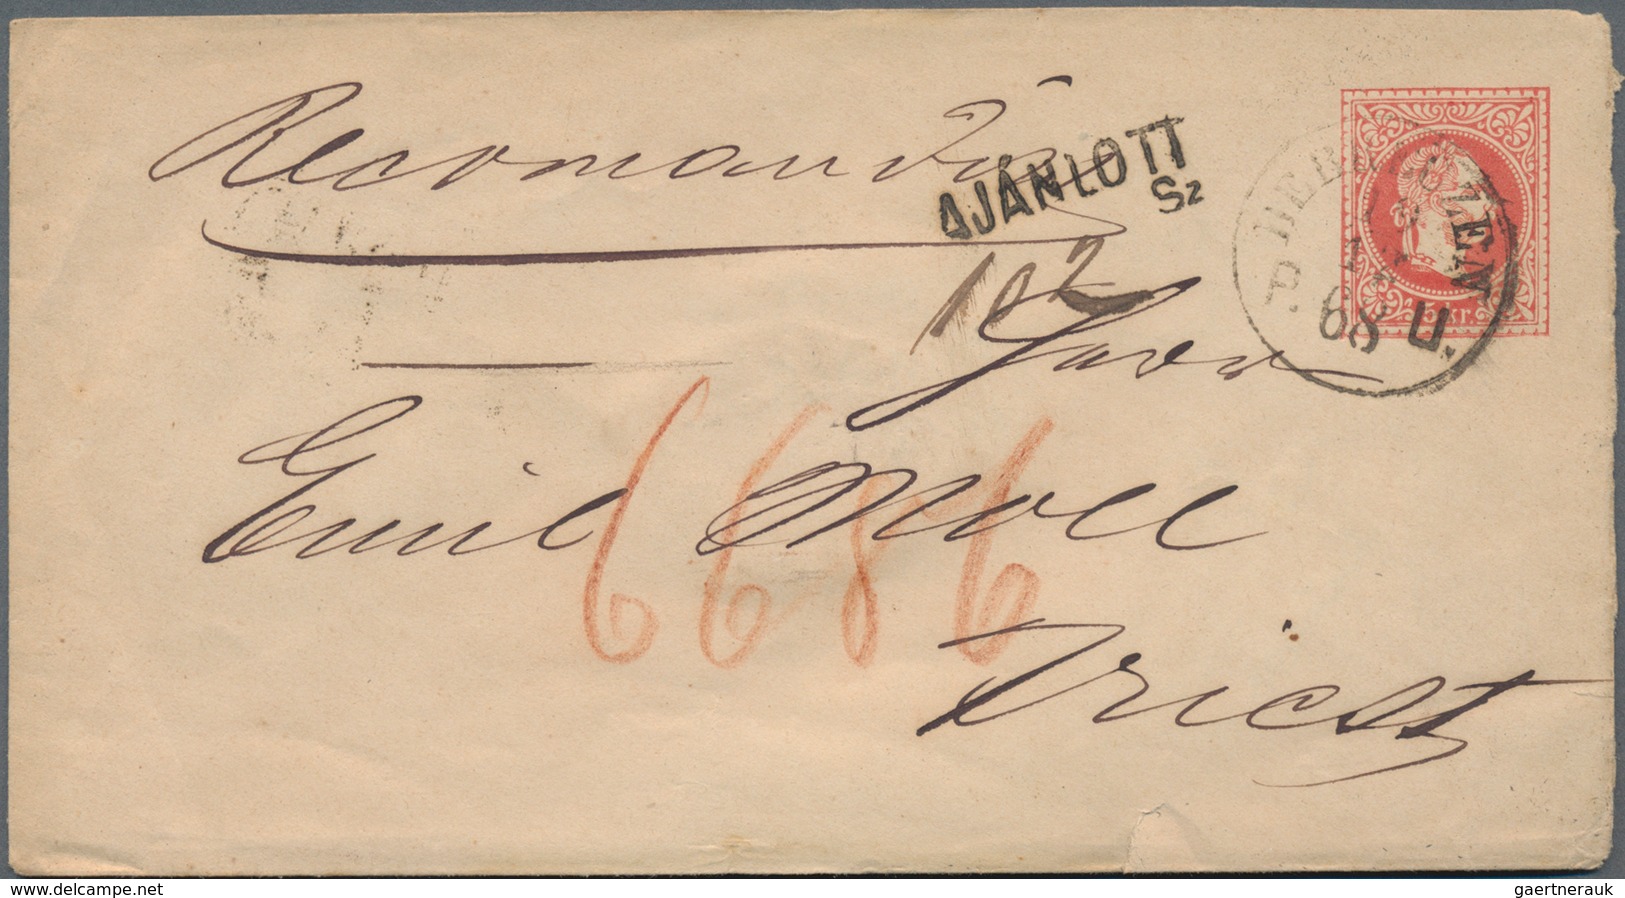 Recomandirt
AJÁNLOTT
Sz
102
DEBRECZEN
68
P. U.
5 kr.
Emil Moll
6686
Triest
www.delcampe.net
gaertnerauk